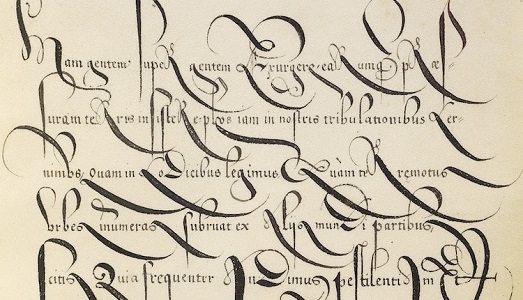 Nam gentem super gentem Exurgere, eaRumq; pRæs-
suram teRRis insisteRe, plꝰ os iam in nostris tribulationibus Cer-
nimus, Quam in coDicibus legimus, Quàm teRRemotus
Vrbes innumeras subruat ex aliis munDi partibus,
scitis, Quia frequenter auDimus, pestilentiam